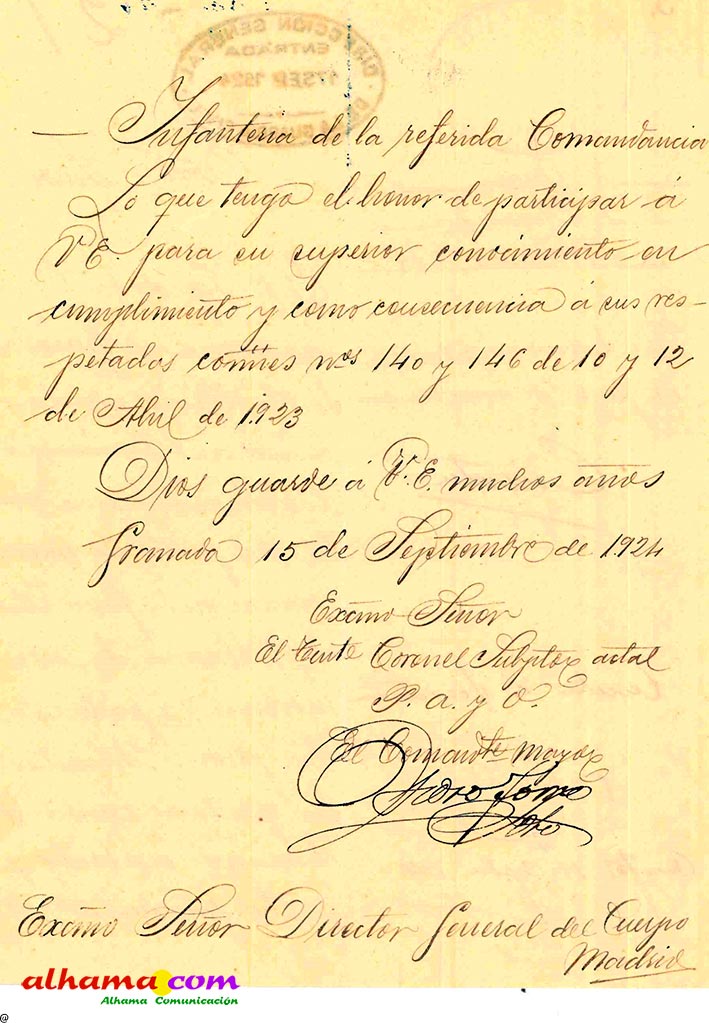 DIRECCIÓN GENERAL
ENTRADA
17 SEP 1924
— Infanteria de la referida Comandancia
Lo que tengo el honor de participar á
V.E. para su superior conocimiento en
cumplimiento y como consecuencia á sus res-
petados comñes nros 140 y 146 de 10 y 12
de Abril de 1.923
Dios guarde á V.E. muchos años
Granada 15 de Septiembre de 1.924
Excmo Señor
El Tente Coronel Subptor actal
P. a. y o.
El Comandte mayor
Excmo Señor Director General del Cuerpo
Madrid
alhama.com
Alhama Comunicación
@